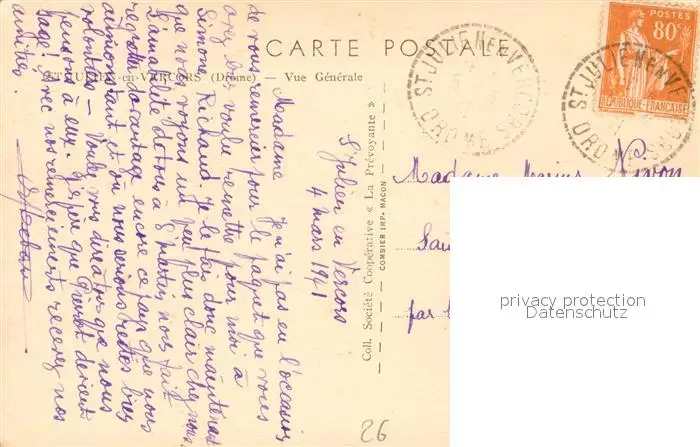 CARTE POSTALE
ST-JULIEN-en-VERCORS (Drôme) — Vue Générale
POSTES
80c
REPUBLIQUE FRANÇAISE
ST JULIEN EN VE
DROME
ST JULIEN EN VE
DROME
St Julien en Vercors
4 mars 1941
Madame Je n'ai pas eu l'occasion
de vous remercier pour le paquet que vous
avez bien voulu remettre pour moi à
Simone Richaud. Je le fais donc maintenant
que nous voyons un peu plus clair chez nous.
L'amabilité de tous à St martin nous fait
regretter davantage encore ce pays que nous
aimions tant et où nous serions restés bien
volontiers — Voulez vous dire à que nous
pensons à eux. J'espère que devient
sage! Avec nos remerciements recevez nos
amitiés.
Coll. Société Coopérative « La Prévoyante »
COMBIER IMP. MACON
Madame Marius
par
privacy protection
Datenschutz
26